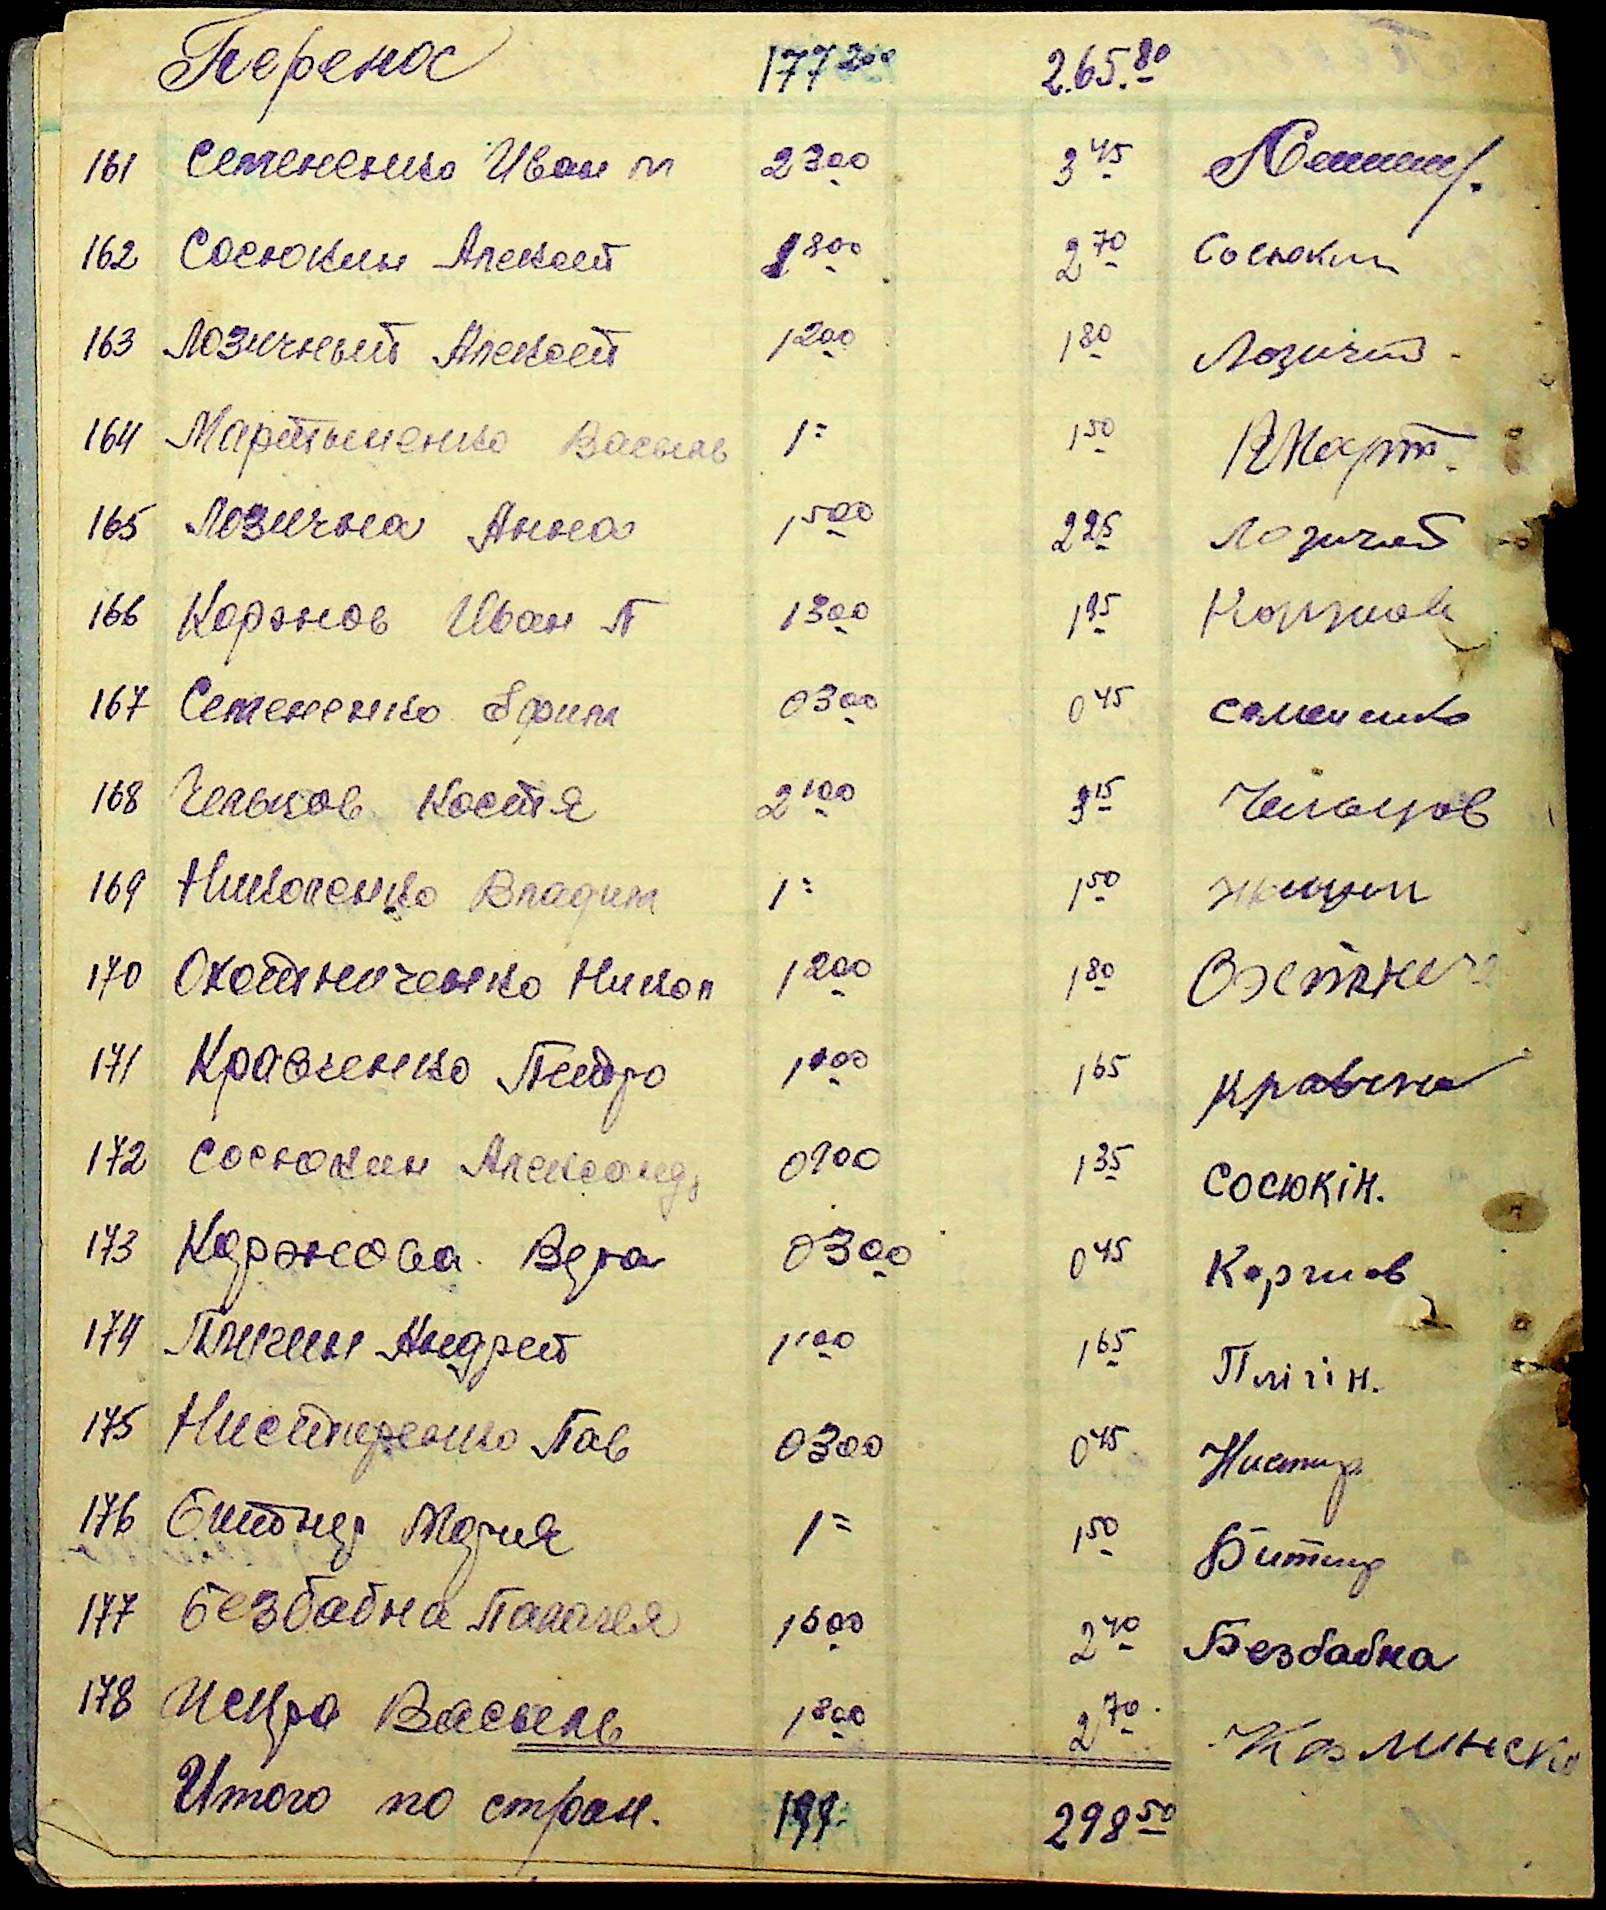 Перенос 177 200 265.80
161 Семененко Иван М 2 300 3 45
162 Сосюкин Алексей 1 800 2 70 Сосюкин
163 Лозичный Алексей 1 200 1 80 Лозичный
164 Мартыненко Василь 1= 1 50 ВМарт.
165 Лозична Анна 1 500 2 25 Лозичной
166 Коржов Иван П 1 300 1 95 Коржов
167 Семененко Ефим 0 300 0 45 Семененко
168 Чельцов Костя 2 100 3 15 Чельцов
169 Николенко Владим 1= 1 50
170 Охотниченко Никол 1 200 1 80 Охотнич
171 Кравченко Петро 1 100 1 65 Кравченко
172 Сосюкин Александ, 0 900 1 35 Сосюкін.
173 Коржова Вера 0 300 0 45 Коржов
174 Плигин Андрей 1 100 1 65 Плігін.
175 Нистиренко Пав 0 300 0 45 Нистир
176 Битнер Мария 1= 1 50 Битнер
177 Безбабна Палагея 1 600 2 40 Безбабна
178 Искра Василь 1 800 2 70 Калинско
Итого по стран. 199. 298 50